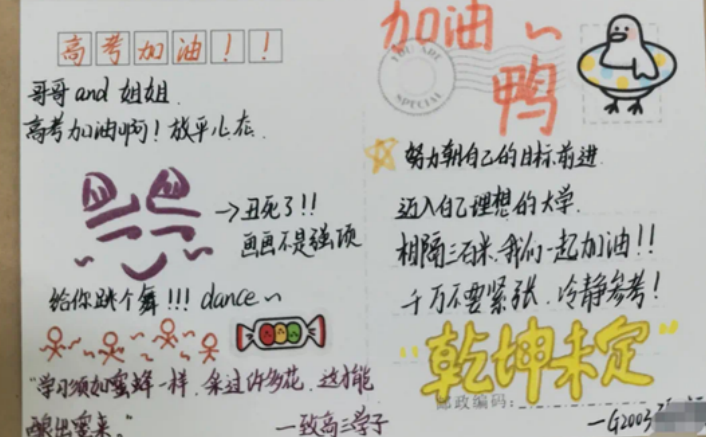 高考加油！！
哥哥 and 姐姐
高考加油啊！放平心态
→丑死了!!
画画不是强项
给你跳个舞!!! dance~
"学习须如蜜蜂一样，采过许多花，这才能
酿出蜜来。"
一致高三学子
加油~
鸭
YOU ARE
SPECIAL
努力朝自己的目标前进
迈入自己理想的大学
相隔三百米，我们一起加油!!
千万不要紧张，冷静参考!
"乾坤未定"
邮政编码:
—G2003